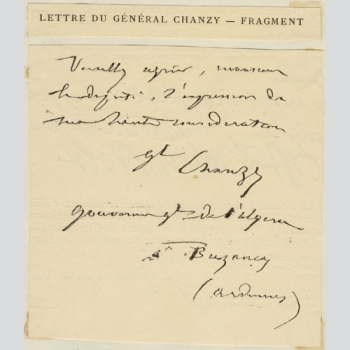 LETTRE DU GÉNÉRAL CHANZY — FRAGMENT
Veuillez agréer, monsieur
le député, l'expression de
ma haute considération
Gl Chanzy
gouverneur gl de l'Algérie
à Buzancy
(Ardennes)